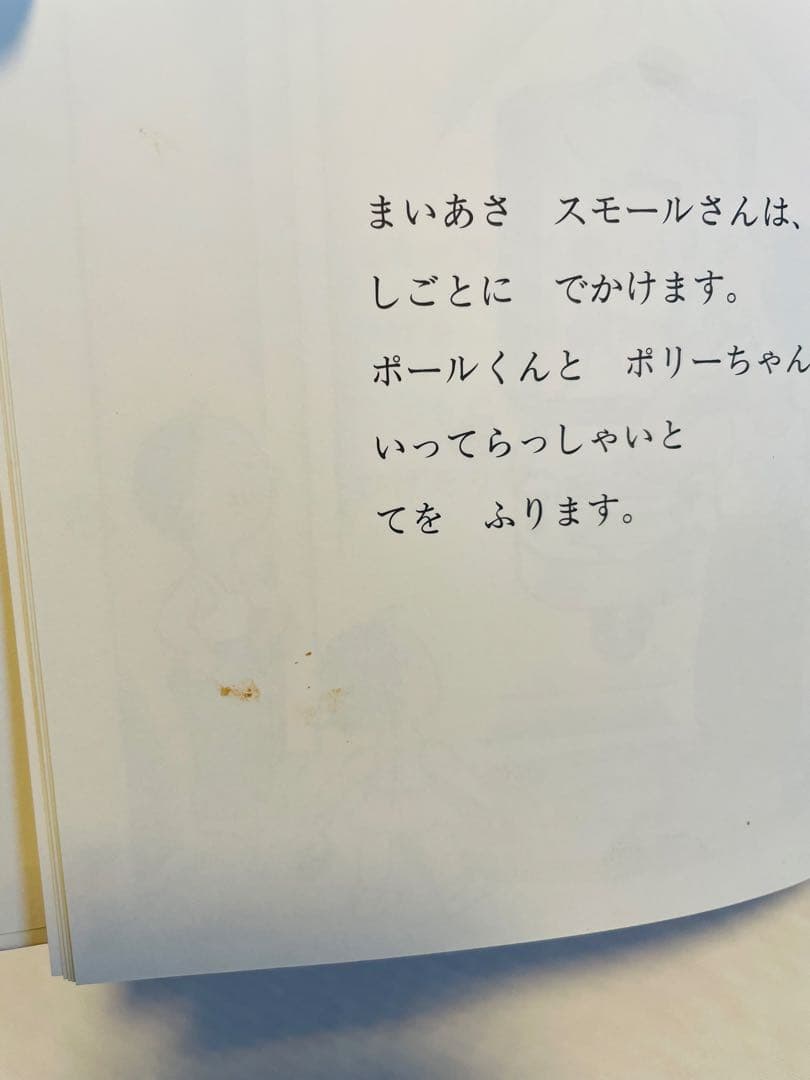 まいあさ　スモールさんは、
しごとに　でかけます。
ポールくんと　ポリーちゃん
いってらっしゃいと
てを　ふります。